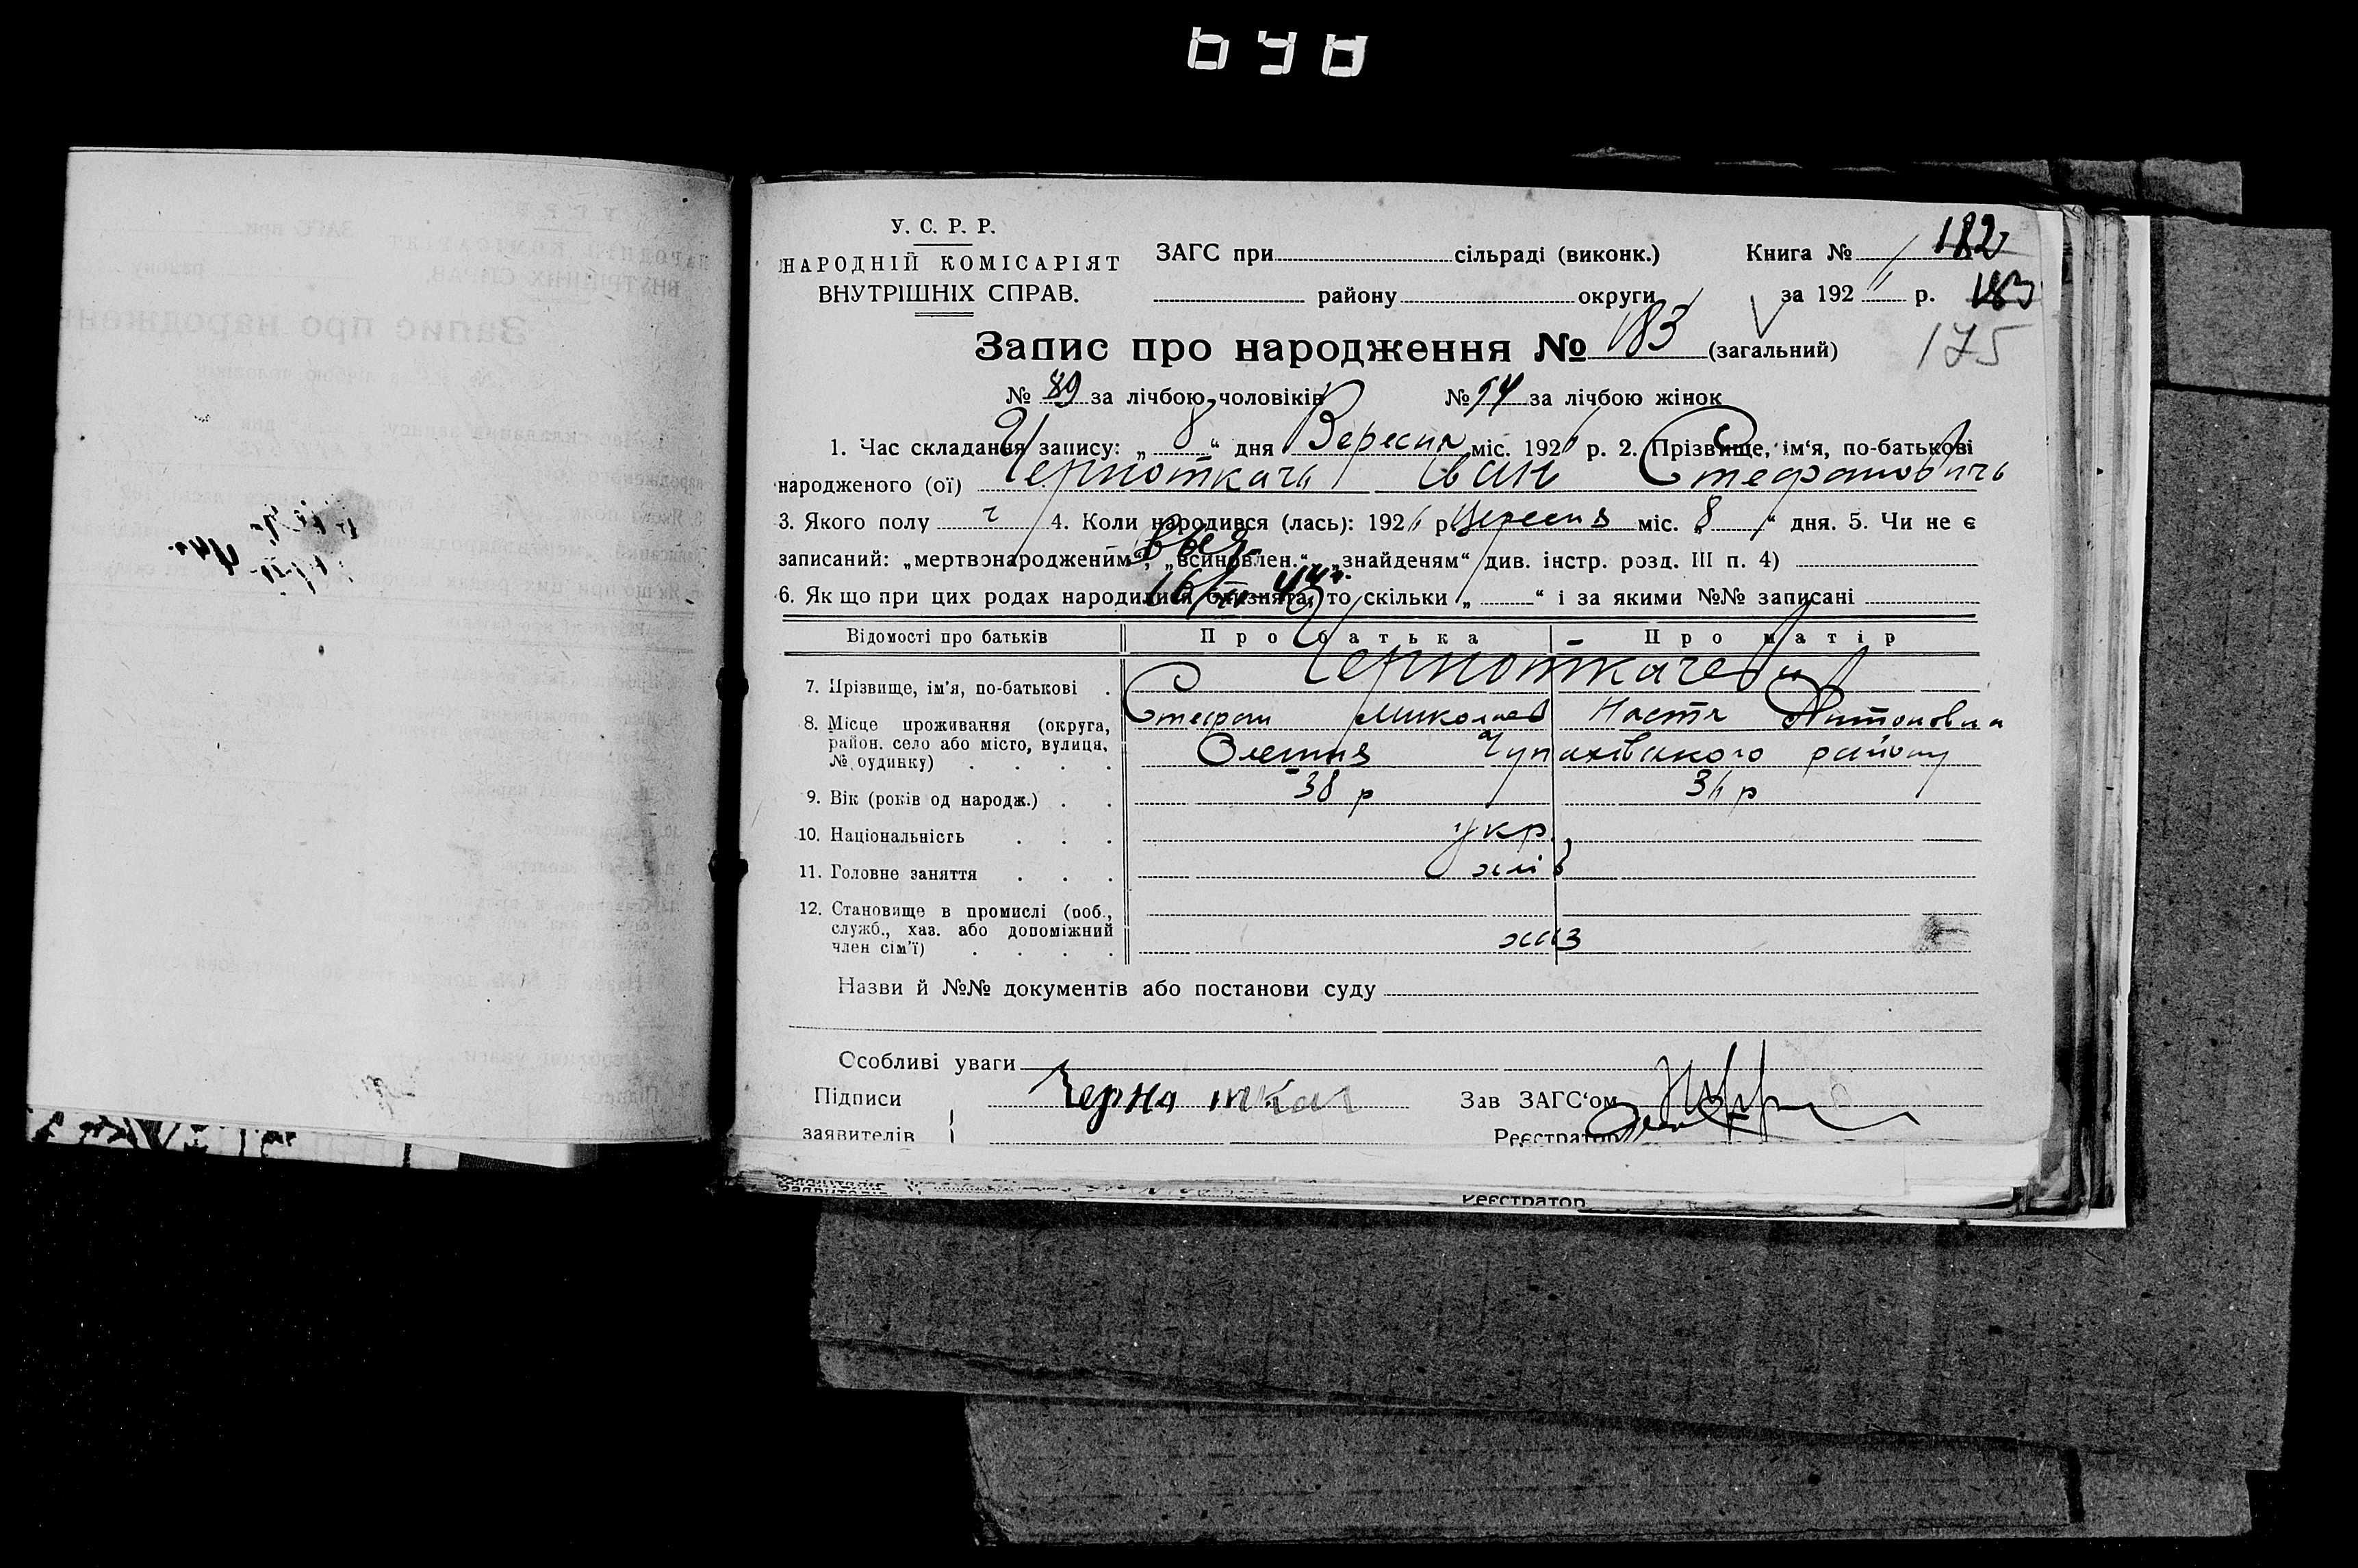 У. С. Р. Р.
НАРОДНІЙ КОМІСАРІЯТ
ВНУТРІШНІХ СПРАВ.
ЗАГС при сільраді (виконк.)
району округи
Книга № 182
за 192 р. 183
175
Запис про народження № 183 (загальний)
№ 89 за лічбою чоловіків № 94 за лічбою жінок
1. Час складання запису: „ 8 “ дня Вересня міс. 192 р. 2. Прізвище, ім‘я, по-батькові
народженого (ої) Чернոткачь Іван Стефановичь
3. Якого полу ч 4. Коли народився (лась): 192 р. Вересня міс. „ 8 “ дня. 5. Чи не є
записаний: „мертвонародженим“, „всиновлен.“, „знайденям“ див. інстр. розд. III п. 4)
6. Як що при цих родах народилися близнята, то скільки „ “ і за якими №№ записані
Відомості про батьків Про батька Про матір
7. Прізвище, ім’я, по-батькові Чорноткачеви
Стефан Миколаев Настя Антоновна
8. Місце проживання (округа,
район. село або місто, вулиця,
№ будинку) Чупахівського району
9. Вік (років од народж.) 38 р р
10. Національність укр.
11. Головне заняття хліб
12. Становище в промислі (роб.,
служб., хаз. або допоміжний
член сім’ї) хаз
Назви й №№ документів або постанови суду
Особливі уваги
Підписи Чернаткач Зав ЗАГС‘ом
заявителів Реєстратор
Реєстратор